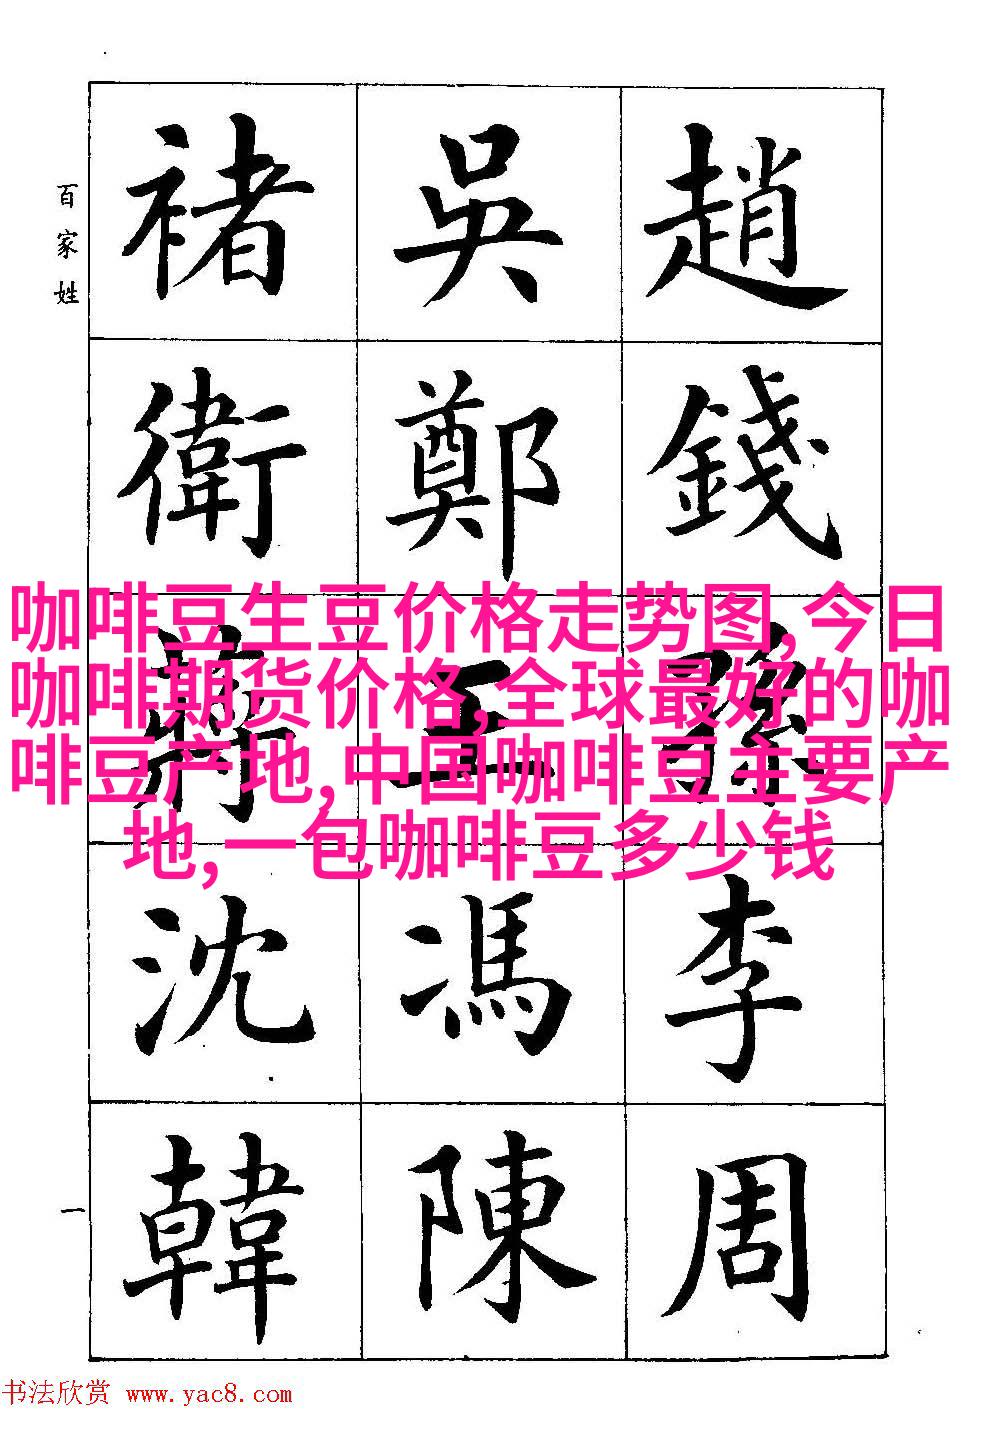 百家姓
趙錢孫李周
吳鄭王馮陳
褚衛蔣沈韓
一
咖啡豆生豆价格走势图,今日
咖啡期货价格,全球最好的咖
啡豆产地,中国咖啡豆主要产
地,一包咖啡豆多少钱
书法欣赏 www.yac8.com